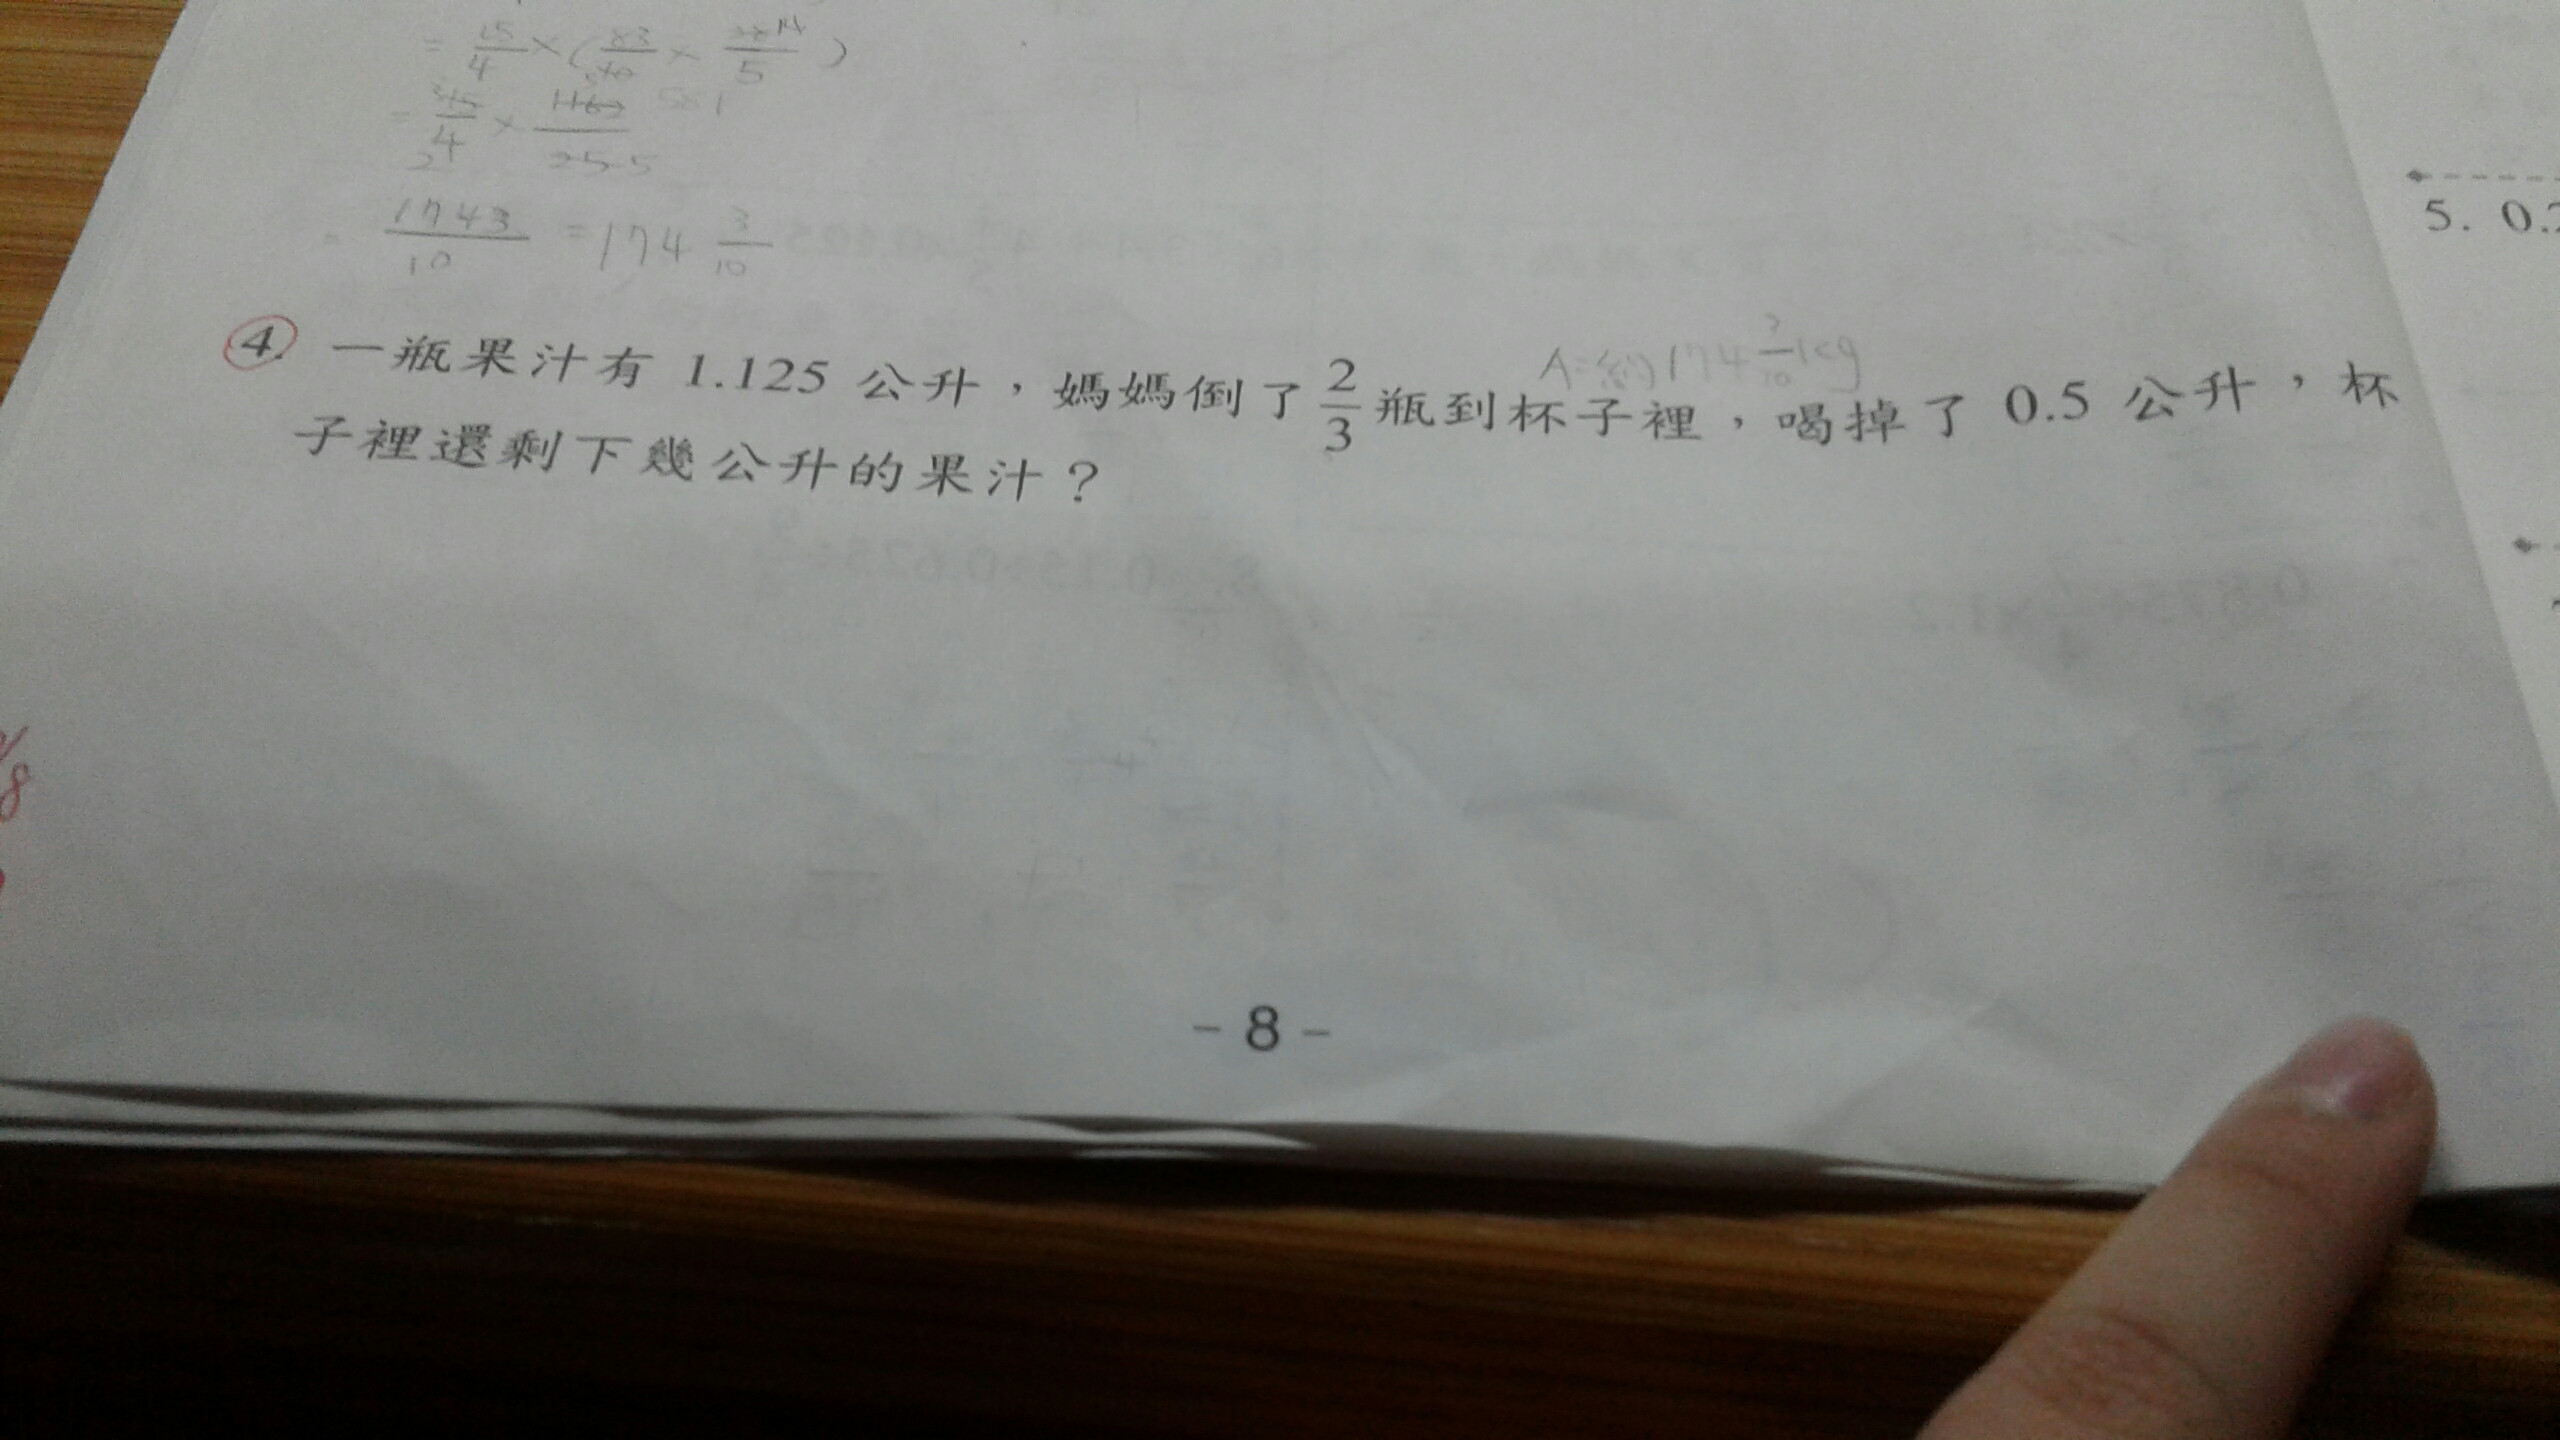 = 15/4 × ( 83/40 × 28 14/5 )
= 315/4 2 × 1162 581/25 5
= 1743/10 = 174 3/10
5. 0.
A:約174 3/10 kg
4. 一瓶果汁有 1.125 公升，媽媽倒了 2/3 瓶到杯子裡，喝掉了 0.5 公升，杯
子裡還剩下幾公升的果汁？
8
- 8 -